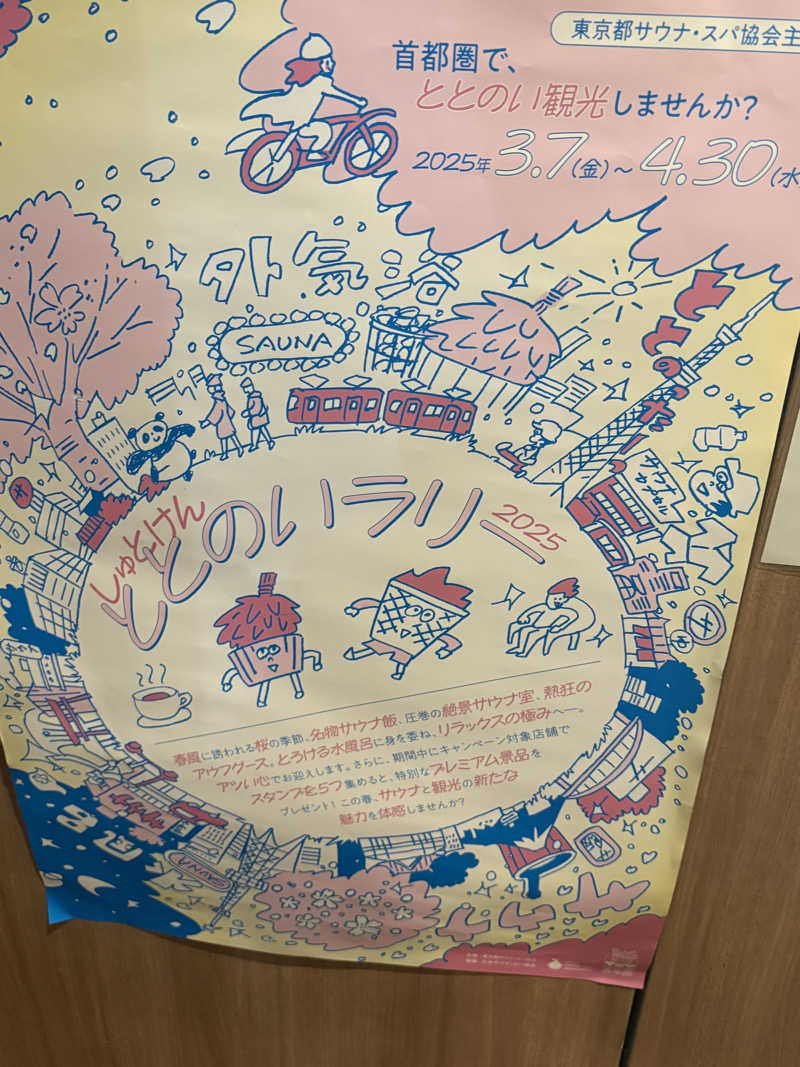 東京都サウナ・スパ協会主
首都圏で、
ととのい観光しませんか?
2025年3.7(金)~4.30(水
外気浴
SAUNA
ととのったー
サウナ
カプセル
しゅとけん
ととのいラリー
2025
春風に誘われる桜の季節、名物サウナ飯、圧巻の絶景サウナ室、熱狂の
アウフグース。とろける水風呂に身を委ね、リラックスの極みへ―。
アツい心でお迎えします。さらに、期間中にキャンペーン対象店舗で
スタンプを5つ集めると、特別なプレミアム景品を
プレゼント! この春、サウナと観光の新たな
魅力を体感しませんか?
サ
ゆ
SAUNA